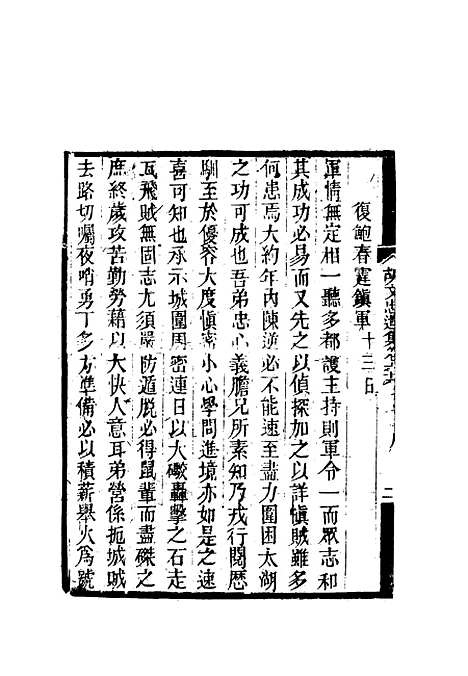 復鮑春霆鎮軍十三日
軍情無定相一聽多都護主持則軍令一而眾志和
其成功必易而又先之以偵探加之以詳慎賊雖多
何患焉大約年內陳逆必不能速至盡力圍困太湖
之功可成也吾弟忠心義膽兄所素知乃戎行閱歷
馴至於優容大度慎密小心學問進境亦如是之速
喜可知也承示城圍周密連日以大礮轟擊之石走
瓦飛賊無固志尤須嚴防遁脫必得鼠輩而盡磔之
庶終歲攻苦勤勞藉以大快人意耳弟營係扼城賊
去路切囑夜哨勇丁多方準備必以積薪舉火爲號